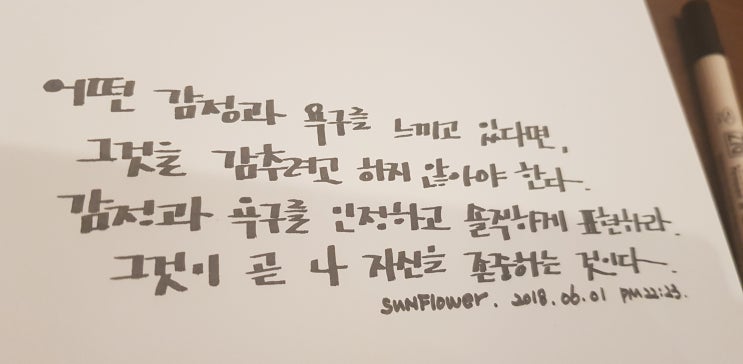 어떤 감정과 욕구를 느끼고 있다면,
그것을 감추려고 하지 않아야 한다.
감정과 욕구를 인정하고 솔직하게 표현하라.
그것이 곧 나 자신을 존중하는 것이다.
SUNFlower. 2018.06.01 PM 22:23.